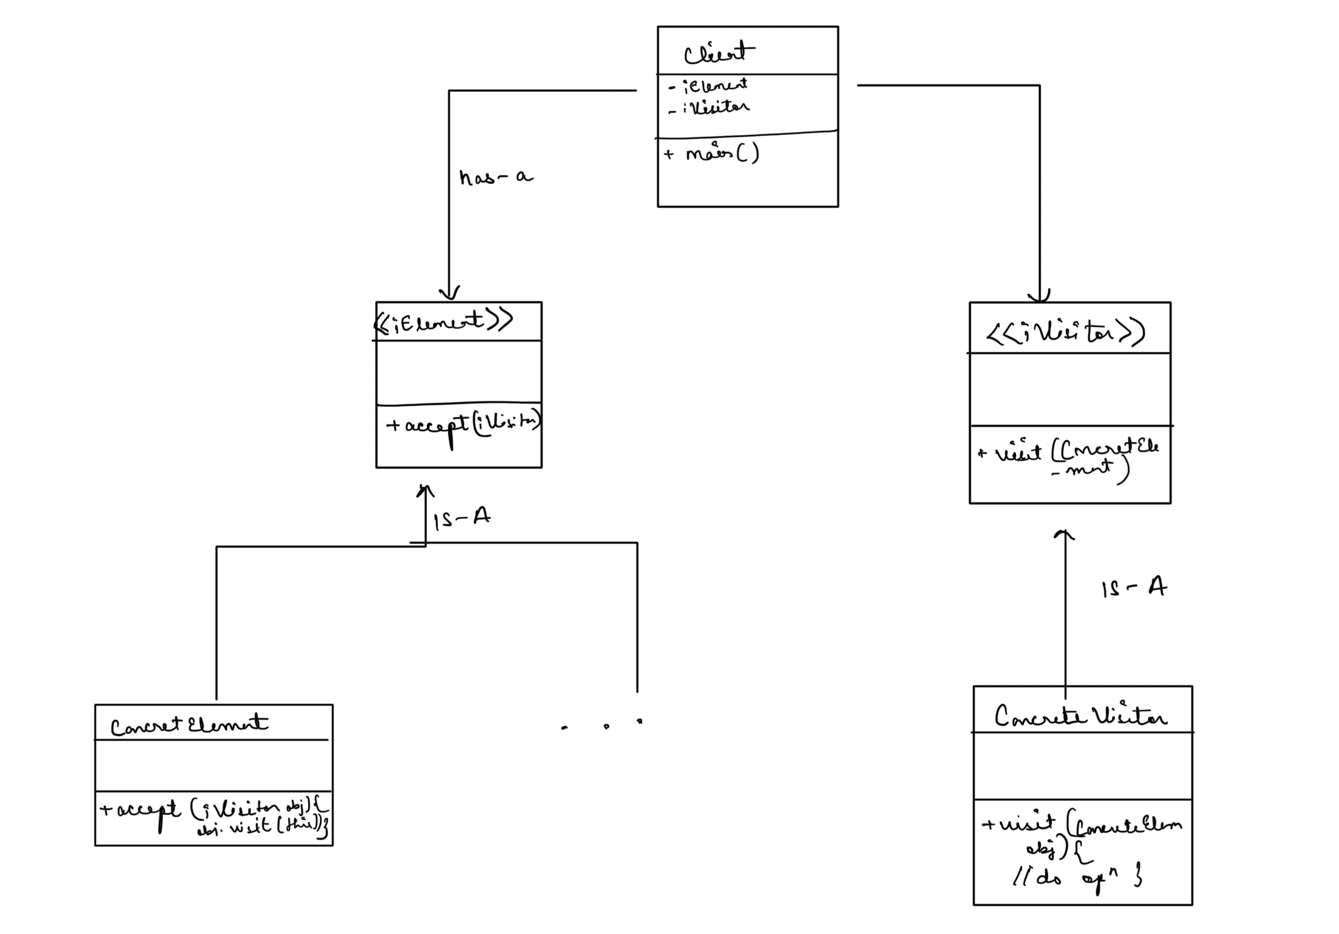 Client
- iElement
- iVisitor
+ main()
has-a
<<iElement>>
+accept(iVisitor)
<<iVisitor>>
+ visit (ConcretEle
-ment)
IS-A
IS-A
ConcretElement
+accept (iVisitor obj){
obj.visit(this)}
. . .
Concrete Visitor
+visit (ConcreteElem
obj){
//do opⁿ }